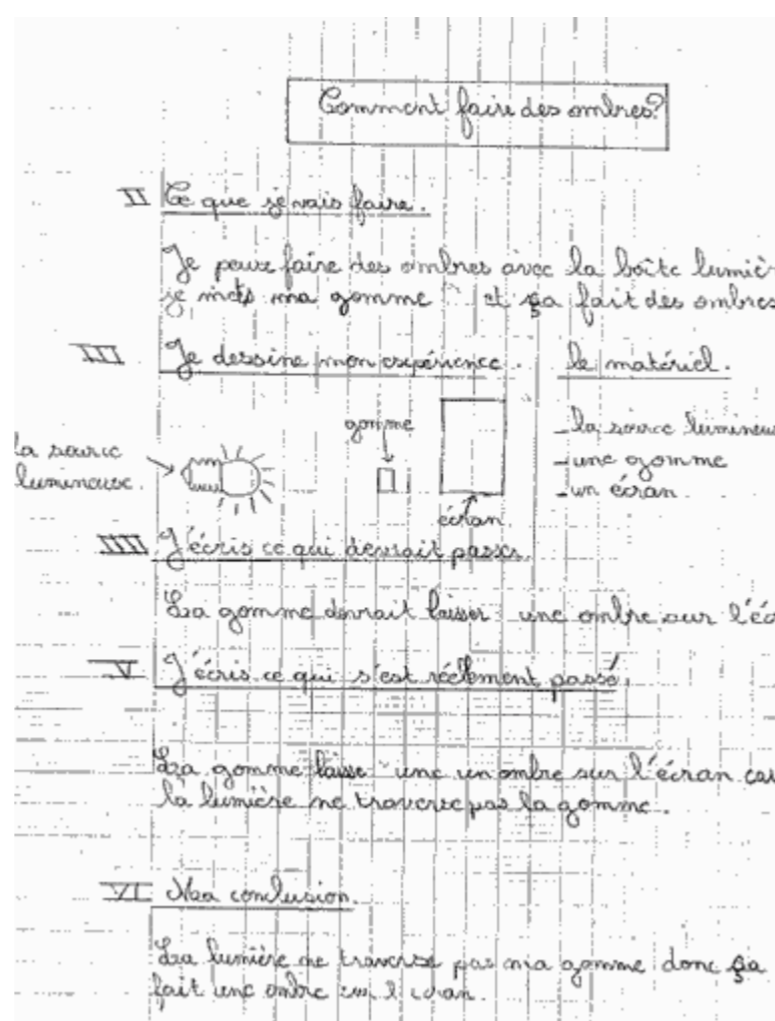 Comment faire des ombres?
II Ce que je vais faire.
Je peux faire des ombres avec la boîte lumiè
je mets ma gomme et ça fait des ombres
III Je dessine mon expérience. le matériel.
gomme
la source lumineuse.
- la source lumineu
- une gomme
- un écran
écran
IIII J'écris ce qui devrait passer.
La gomme devrait laisser une ombre sur l'éc
V J'écris ce qui s'est réellement passé.
La gomme laisse une un ombre sur l'écran car
la lumière ne traverse pas la gomme.
VI Ma conclusion.
La lumière ne traverse pas ma gomme donc ça
fait une ombre sur l'écran.